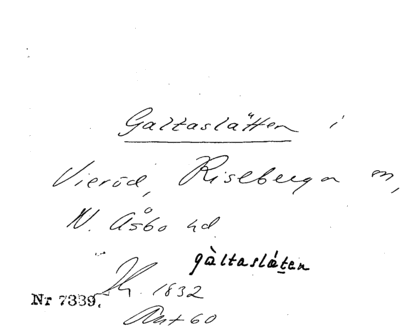 Galtaslätten i
Vieröd, Riseberga sn,
N. Åsbo hd
gàltaslátẹn
1832
Nr 7339.